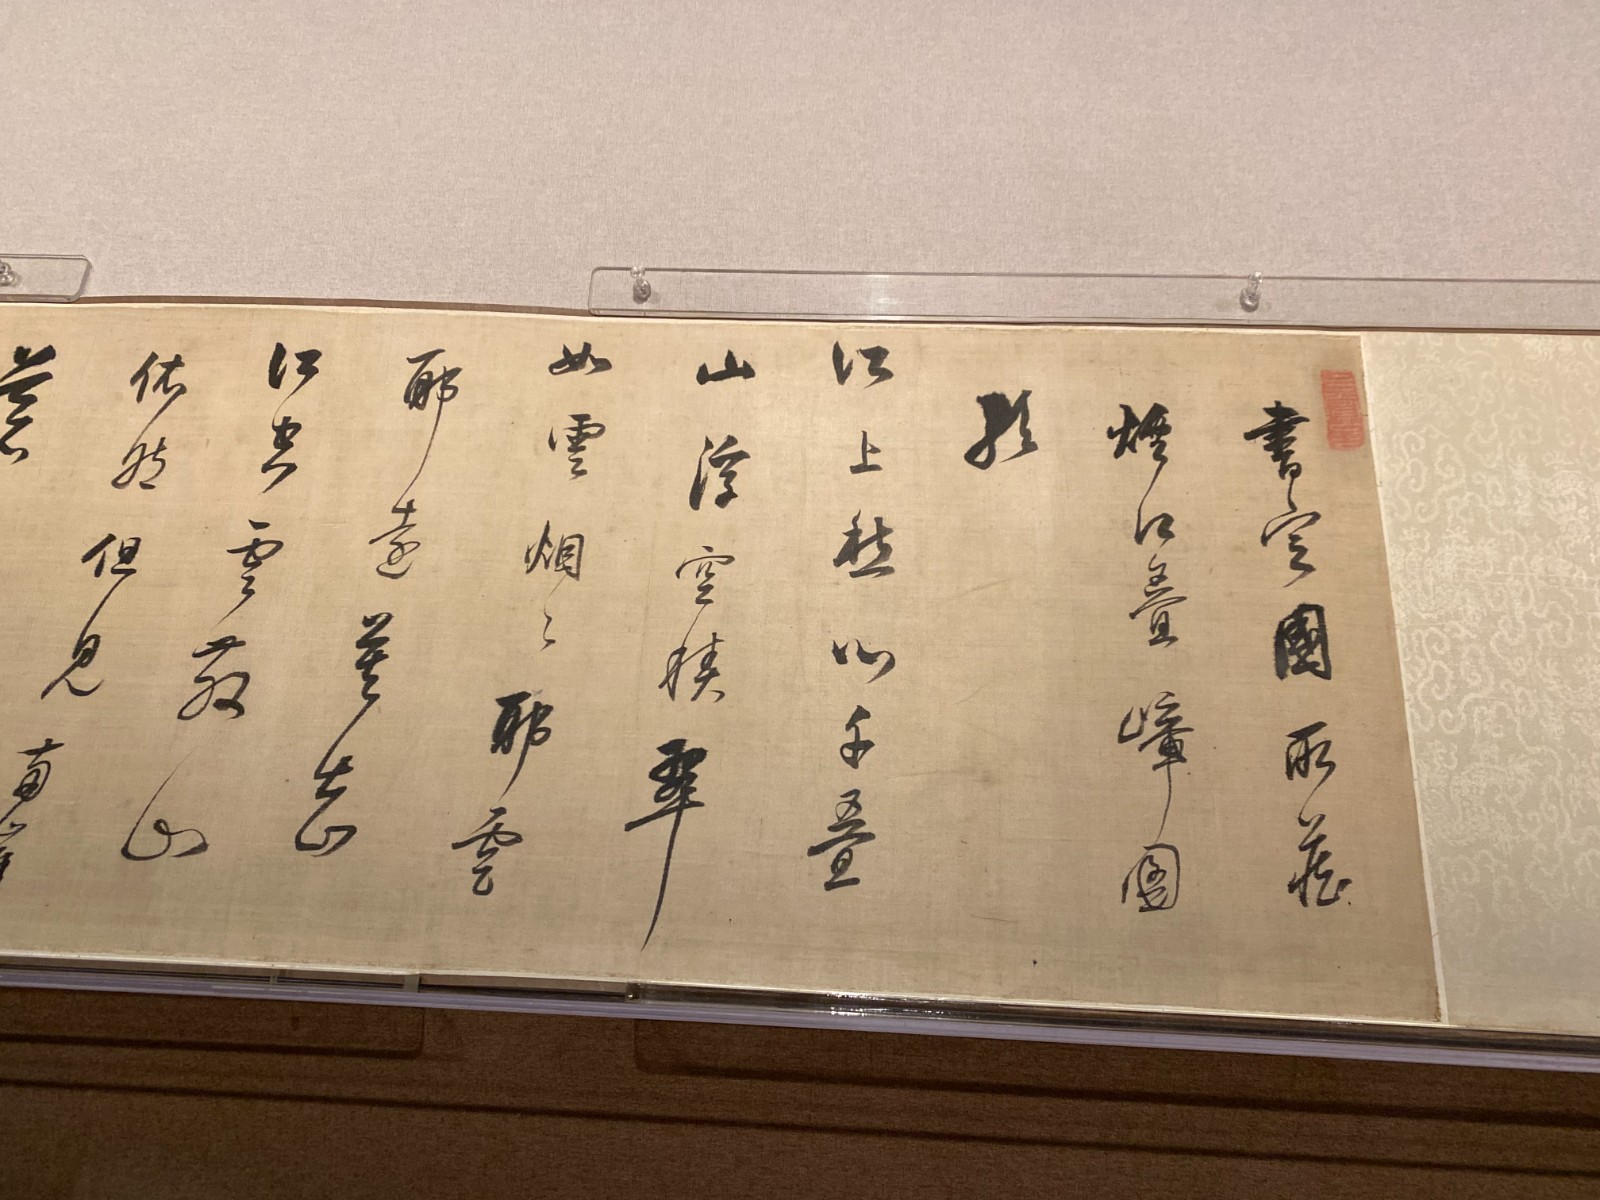 書定國所藏
煙江疊嶂圖
江上愁心千疊
山浮空積翠
如雲烟〻耶雲
耶遠莫知
江空雲散山
依然但見兩崖
蒼